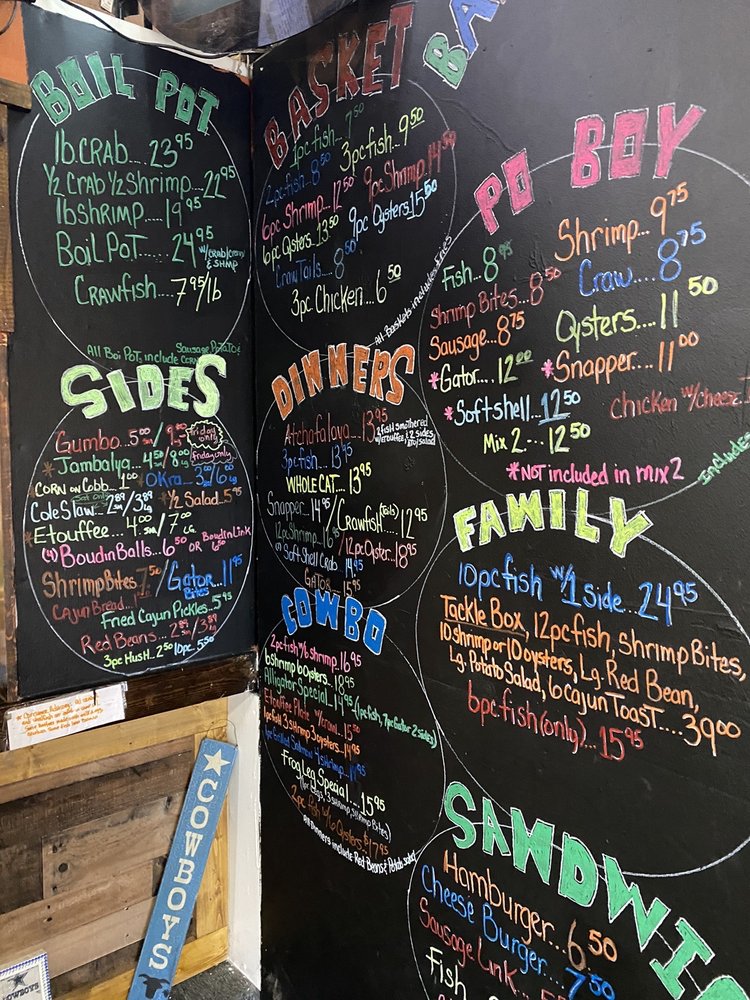 BOIL POT
1lb CRAB.... 23.95
1/2 CRAB 1/2 Shrimp... 21.95
1lb SHRIMP..... 19.95
Boil Pot..... 24.95
Crawfish.... 7.95/lb
SIDES
Gumbo... 5.00
Friday only
Jambalya... 4.50
Friday only
*CORN ON Cobb... 1.00
Okra
Cole Slaw... 2.89/3.89
*1/2 Salad.. 5.95
*Etouffee.... 4.00/7.00
(4) Boudin Balls... 6.50 OR Boudin Link 6.50
Shrimp Bites 7.50/Gator Bites 11.95
Cajun Bread
Fried Cajun Pickles.. 5.95
Red Beans... 2.89/3.89
3pc Hush.. 2.50 10pc 5.50
BASKET
1pc fish... 7.50
2pc fish... 8.50
3pc fish... 9.50
6pc Shrimp... 12.50
9pc Shrimp... 14.50
6pc Oysters.. 13.50
9pc Oysters 15.50
CrawTails.... 8.50
3pc Chicken... 6.50
All Baskets includes fries
DINNERS
Atchafalaya.... 13.95
2 fish smothered w/etouffee & 2 sides
3pc fish... 13.95
WHOLE CAT.... 13.95
Snapper.. 14.95/Crawfish (tails) 12.95
12pc Shrimp... 16.95
12pc Oyster.. 18.95
Soft Shell Crab 14.95
GATOR... 15.95
COMBO
2pc fish 1/6 shrimp.. 16.95
6shrimp 6oysters.. 18.95
Alligator Special... 14.95 (1pc fish, 7pc Gator 2 sides)
Etouffee Plate
3 shrimp 3 oysters.. 14.95
Frog Leg Special.... 15.95
2pc fish 1/6 Oysters
All Dinners include Red Beans & Potato salad
PO BOY
Shrimp... 9.75
Fish... 8.95
Craw.... 8.75
Shrimp Bites... 8.50
Oysters.... 11.50
Sausage... 8.75
*Snapper.... 11.00
*Gator.... 12.00
*Softshell.. 12.50
Chicken w/Cheez
Mix 2... 12.50
*NOT included in mix 2
includes
FAMILY
10pc fish w/1 Side... 24.95
Tackle Box, 12pc fish, Shrimp Bites,
10 shrimp or 10 oysters, Lg. Red Bean,
Lg. Potato Salad, 6 cajun Toast..... 39.00
6pc fish (only)... 15.95
SANDWIC
Hamburger... 6.50
Cheese Burger... 7.50
Sausage Link
Fish
COWBOYS
COWBOYS